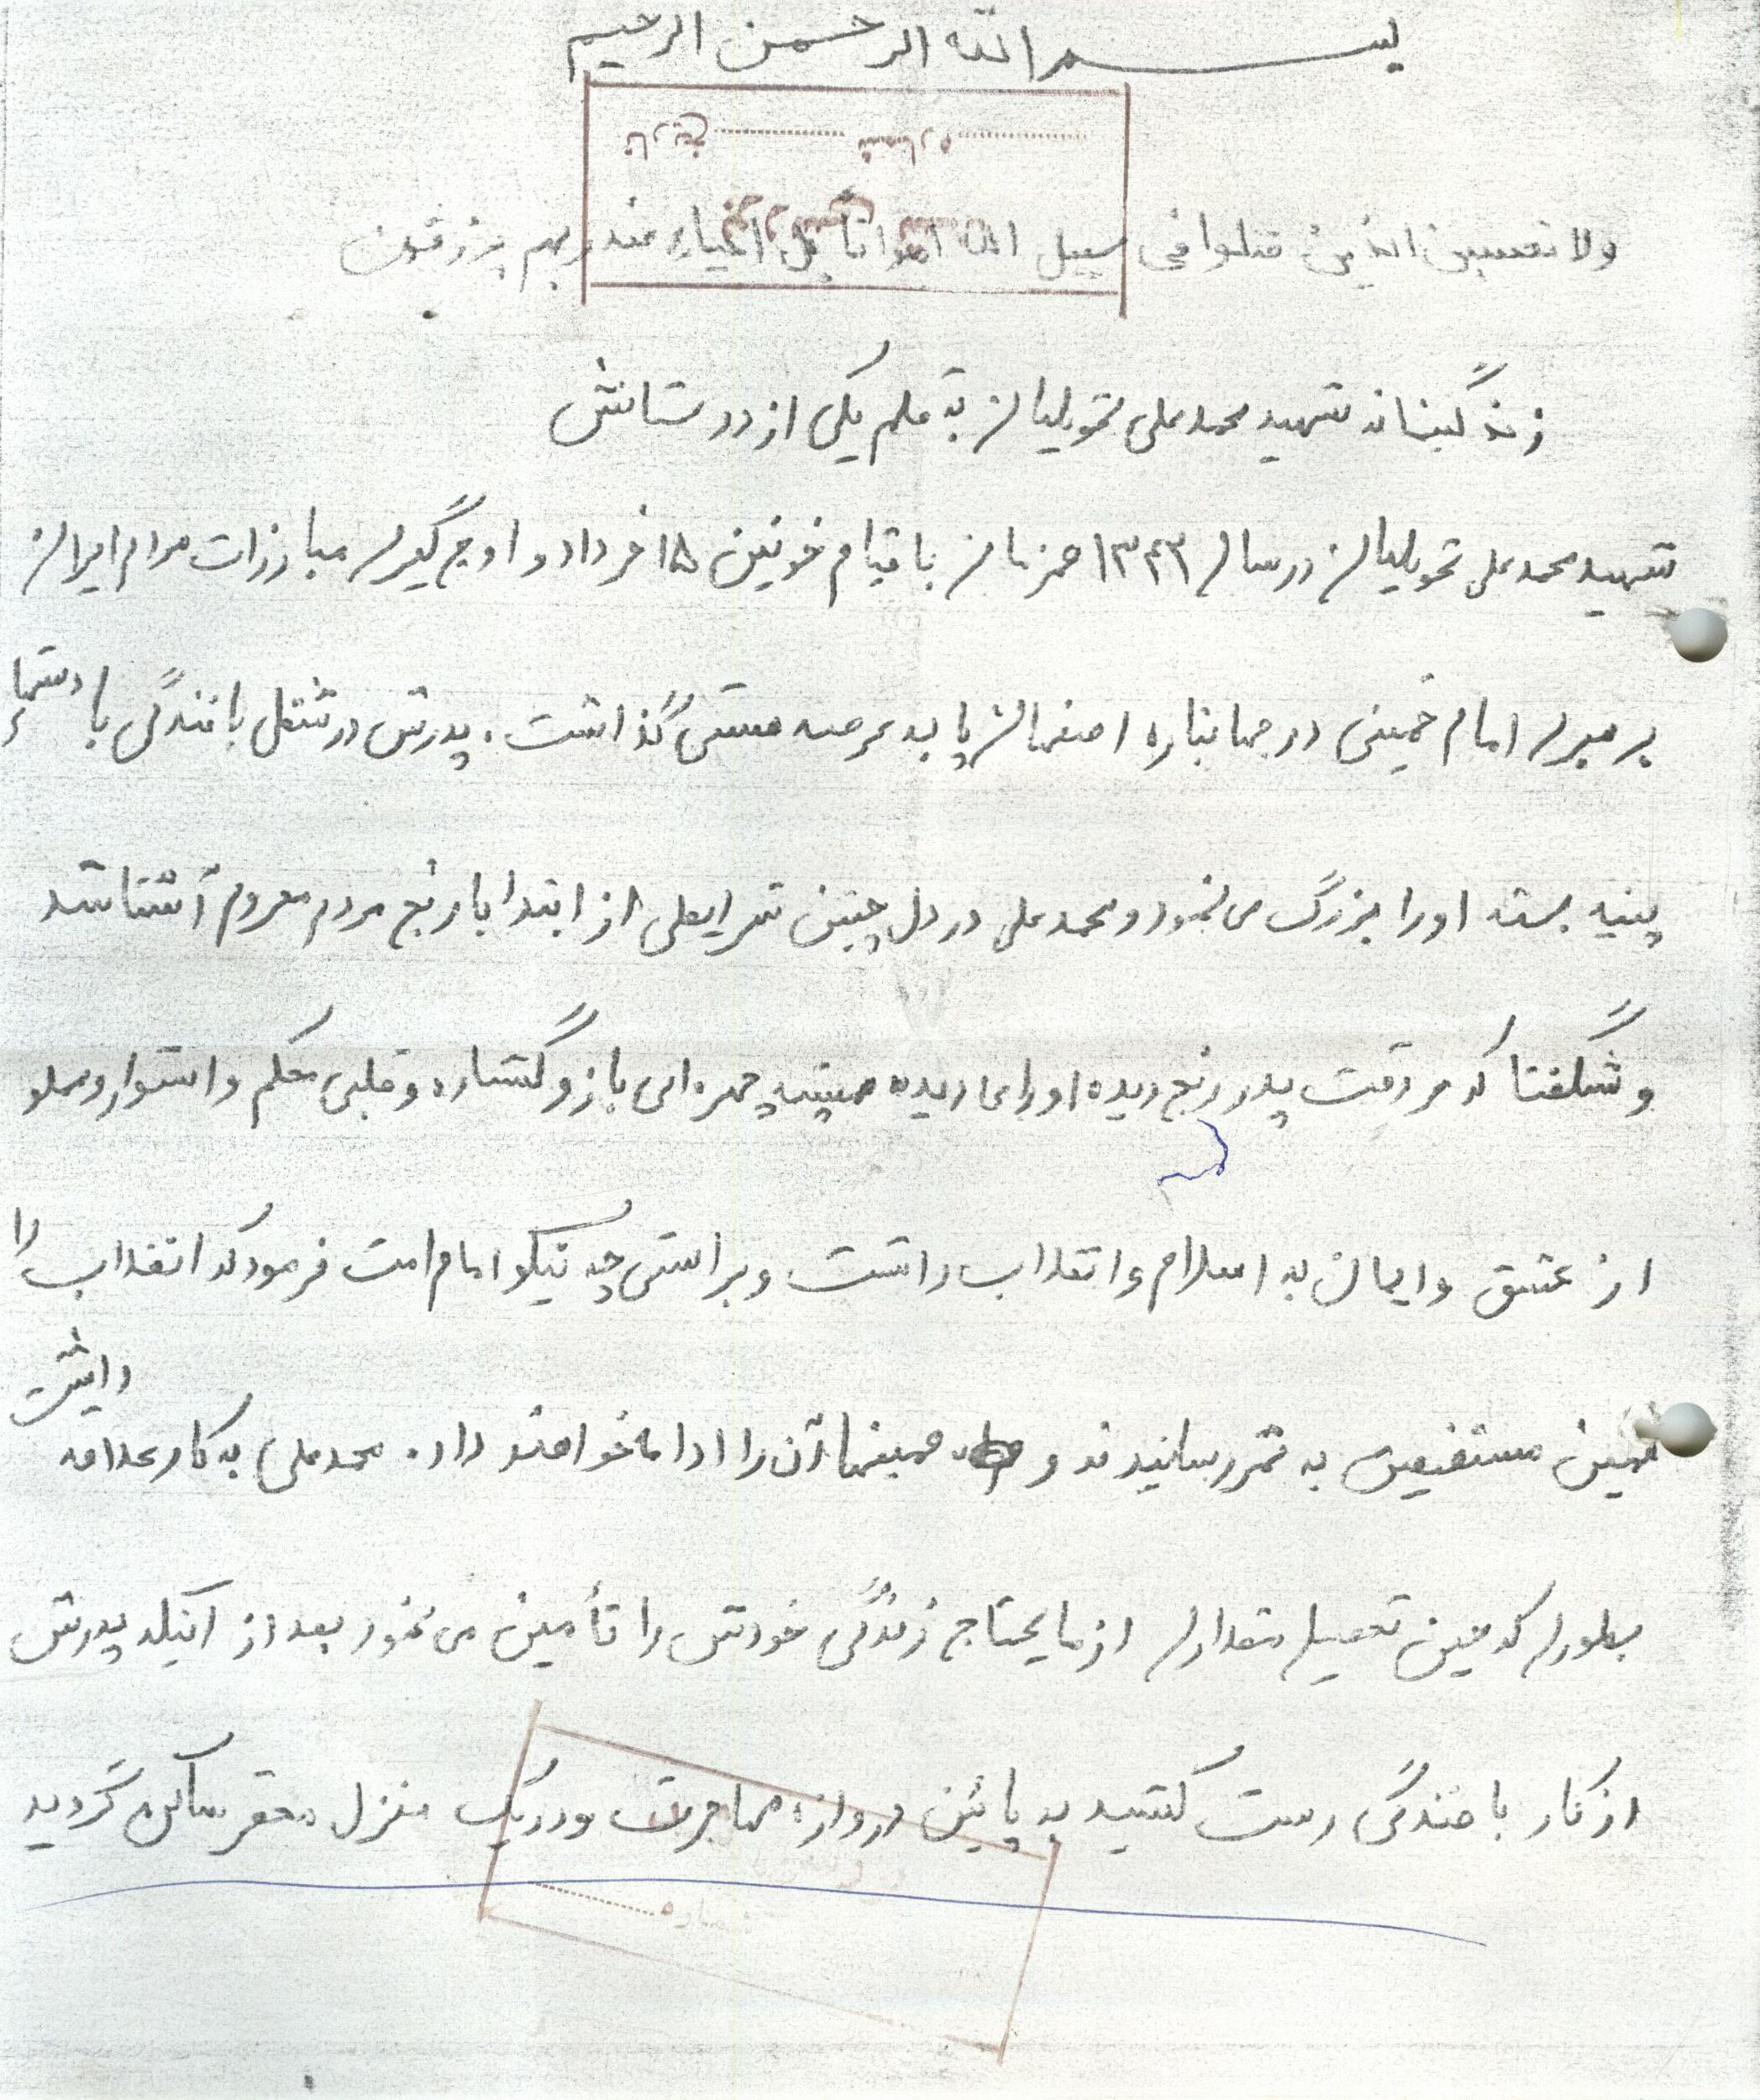 بسم الله الرحمن الرحیم
تاریخ شماره
ولا تحسبن الذین قتلوا فی سبیل الله امواتا بل احیاء عند ربهم یرزقون
زندگینامه شهید محمد علی تحویلیان به قلم یکی از دوستانش
شهید محمد علی تحویلیان در سال ۱۳۴۳ همزمان با قیام خونین ۱۵ خرداد و اوج گیری مبارزات مردم ایران
برهبری امام خمینی در جهانباره اصفهان پا به عرصه هستی گذاشت. پدرش در شغل بافندگی با دستهای
پینه بسته او را بزرگ می نمود و محمد علی در دل چنین شرایطی از ابتدا با رنج مردم محروم آشنا شد
و شگفتا که هر وقت پدر رنج دیده او را می دیده همیشه چهره ای باز و گشاده و قلبی محکم و استوار و مملو
از عشق و ایمان به اسلام و انقلاب داشت و براستی چه نیکو امام امت فرمود که انقلاب را
همین مستضعفین به ثمر رسانیدند و همینها آن را ادامه خواهند داد. محمد علی به کار علاقه داشت
بطوری که حین تحصیل مقداری از مایحتاج زندگی خودش را تأمین می نمود بعد از اینکه پدرش
از کار بافندگی دست کشید به پائین دروازه مهاجرت و در یک منزل محقر ساکن گردید
شماره